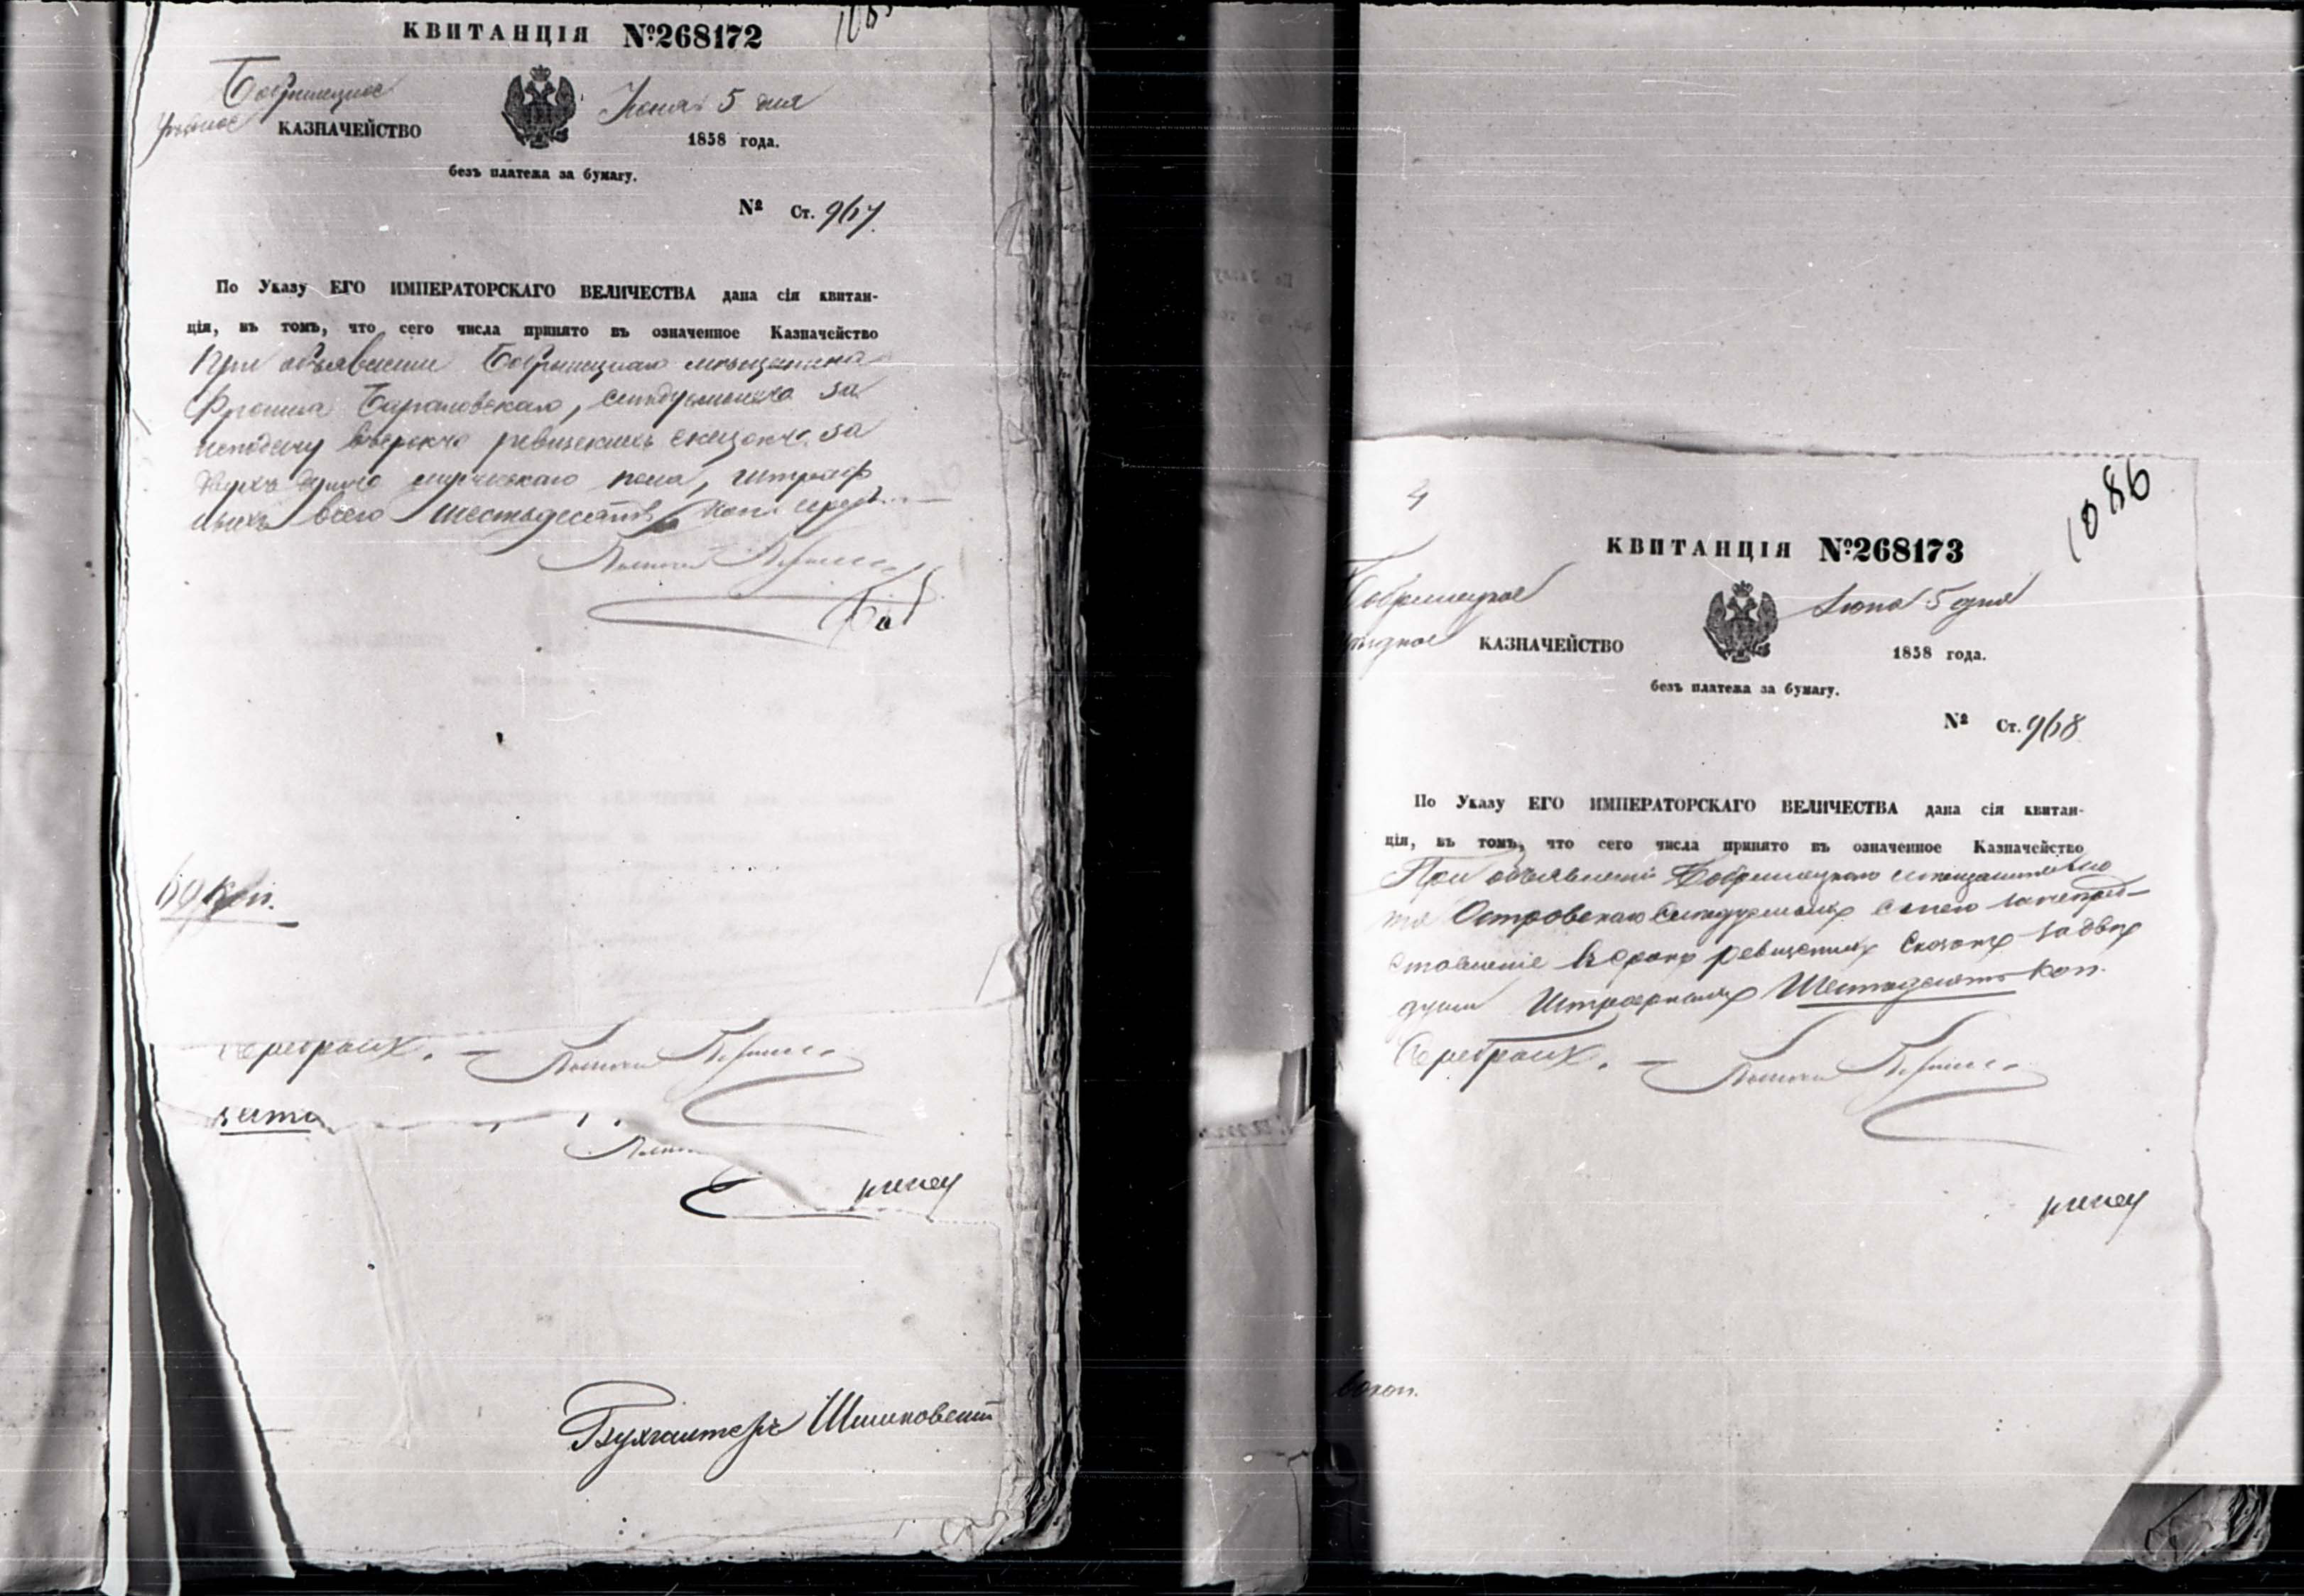 КВИТАНЦІЯ №268172
Бобринецкое
Уѣздное КАЗНАЧЕЙСТВО
Іюня 5 дня
1858 года.
безъ платежа за бумагу.
№ Ст. 967.
По Указу ЕГО ИМПЕРАТОРСКАГО ВЕЛИЧЕСТВА дана сія квитан-
ція, въ томъ, что сего числа принято въ означенное Казначейство
При объявленіи Бобринецкаго мѣщанина
Барановскаго, слѣдуемыхъ за
неподачу въ срокъ ревизскихъ сказокъ за
двухъ душъ мужескаго пола, штраф
ныхъ всего шестьдесятъ коп. сереб.
60 коп.
Серебромъ.
Бухгалтеръ Шишковскій
1086
4
КВИТАНЦІЯ №268173
Бобринецкое
уѣздное КАЗНАЧЕЙСТВО
Іюня 5 дня
1858 года.
безъ платежа за бумагу.
№ Ст. 968
По Указу ЕГО ИМПЕРАТОРСКАГО ВЕЛИЧЕСТВА дана сія квитан-
ція, въ томъ, что сего числа принято въ означенное Казначейство
При объявленіи Бобринецкаго мѣщанина
Островскаго слѣдуемыхъ с него за непред-
ставленіе въ срокъ ревизскихъ сказокъ за двѣ
души Штрафныхъ Шестьдесятъ коп.
Серебромъ.
60 коп.